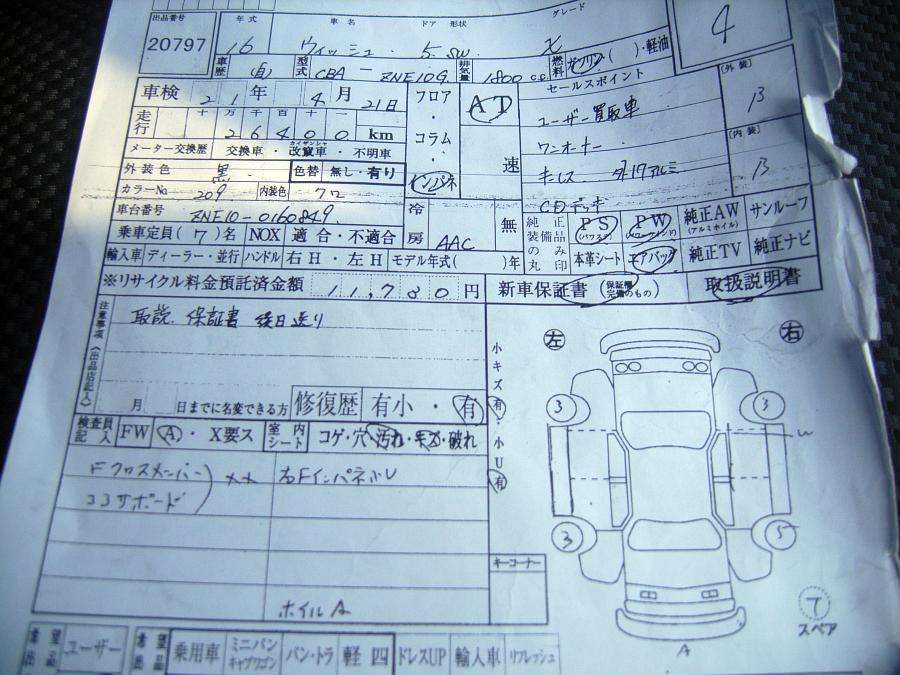 出品番号 年式 車名 ドア 形状 グレード
20797 16 ウィッシュ 5 SW X 4
車歴 (自) 型式 CBA-ZNE10G 排気量 1800cc 燃料 ガソリン( )・軽油
車検 21年 4月 21日 フロア・コラム・インパネ AT 速 セールスポイント [外装] B
ユーザー買取車
走行 十万千百十一
26400km
ワンオーナー [内装] B
メーター交換歴 交換車・改竄車・不明車
カイザンシャ
キーレス 外17アルミ
外装色 黒 色替 無し・有り
CDデッキ
カラーNo 209 内装色 クロ
車台番号 ZNE10-0160849 冷房 AAC 無 純正装備品のみ丸印 PS (パワステ) PW (パワーウィンドウ) 純正AW (アルミホイル) サンルーフ
乗車定員(7)名 NOX 適合・不適合
本革シート エアバッグ 純正TV 純正ナビ
輸入車 ディーラー・並行 ハンドル 右H・左H モデル年式( )年
※リサイクル料金預託済金額 11,780円 新車保証書 (保証欄完備のもの) 取扱説明書
注意事項(出品店記入)
取説、保証書 後日送り
月 日までに名変できる方 修復歴 有小・有
小キズ有・小U有
左 右
検査員記入 FW A・X要ス 室内シート コゲ・穴・汚れ・キズ・破れ
Fクロスメンバー
コアサポート
XX
右FインパネホU
ホイルA
キーコーナー
3 3
W
3 5
A
ア
スペア
希望出 ユーザー 希望出品 乗用車 ミニバン キャブワゴン バン・トラ 軽四 ドレスUP 輸入車 リフレッシュ